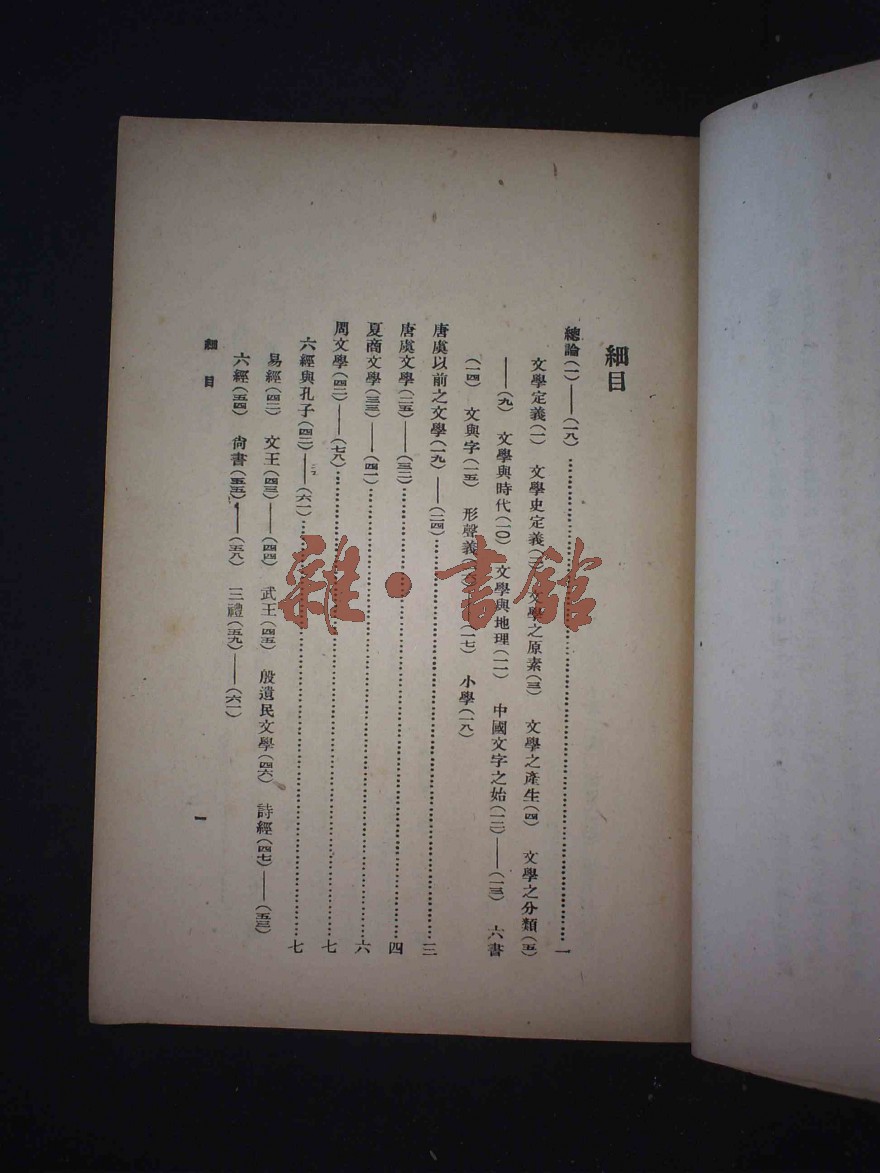 細目
總論(一)——(一八)……一
文學定義(一)　文學史定義(二)　文學之原素(三)　文學之產生(四)　文學之分類(五)
——(九)　文學與時代(一〇)　文學與地理(一一)　中國文字之始(一二)——(一三)　六書
(一四)　文與字(一五)　形聲義(一六)——(一七)　小學(一八)
唐虞以前之文學(一九)——(二四)……三
唐虞文學(二五)——(三二)……四
夏商文學(三三)——(四一)……六
周文學(四二)——(七八)……七
六經與孔子(四二)——(六一)……七
易經(四二)　文王(四三)——(四四)　武王(四五)　殷遺民文學(四六)　詩經(四七)——(五三)
六經(五四)　尚書(五五)——(五八)　三禮(五九)——(六一)
細目
一
雜·書館